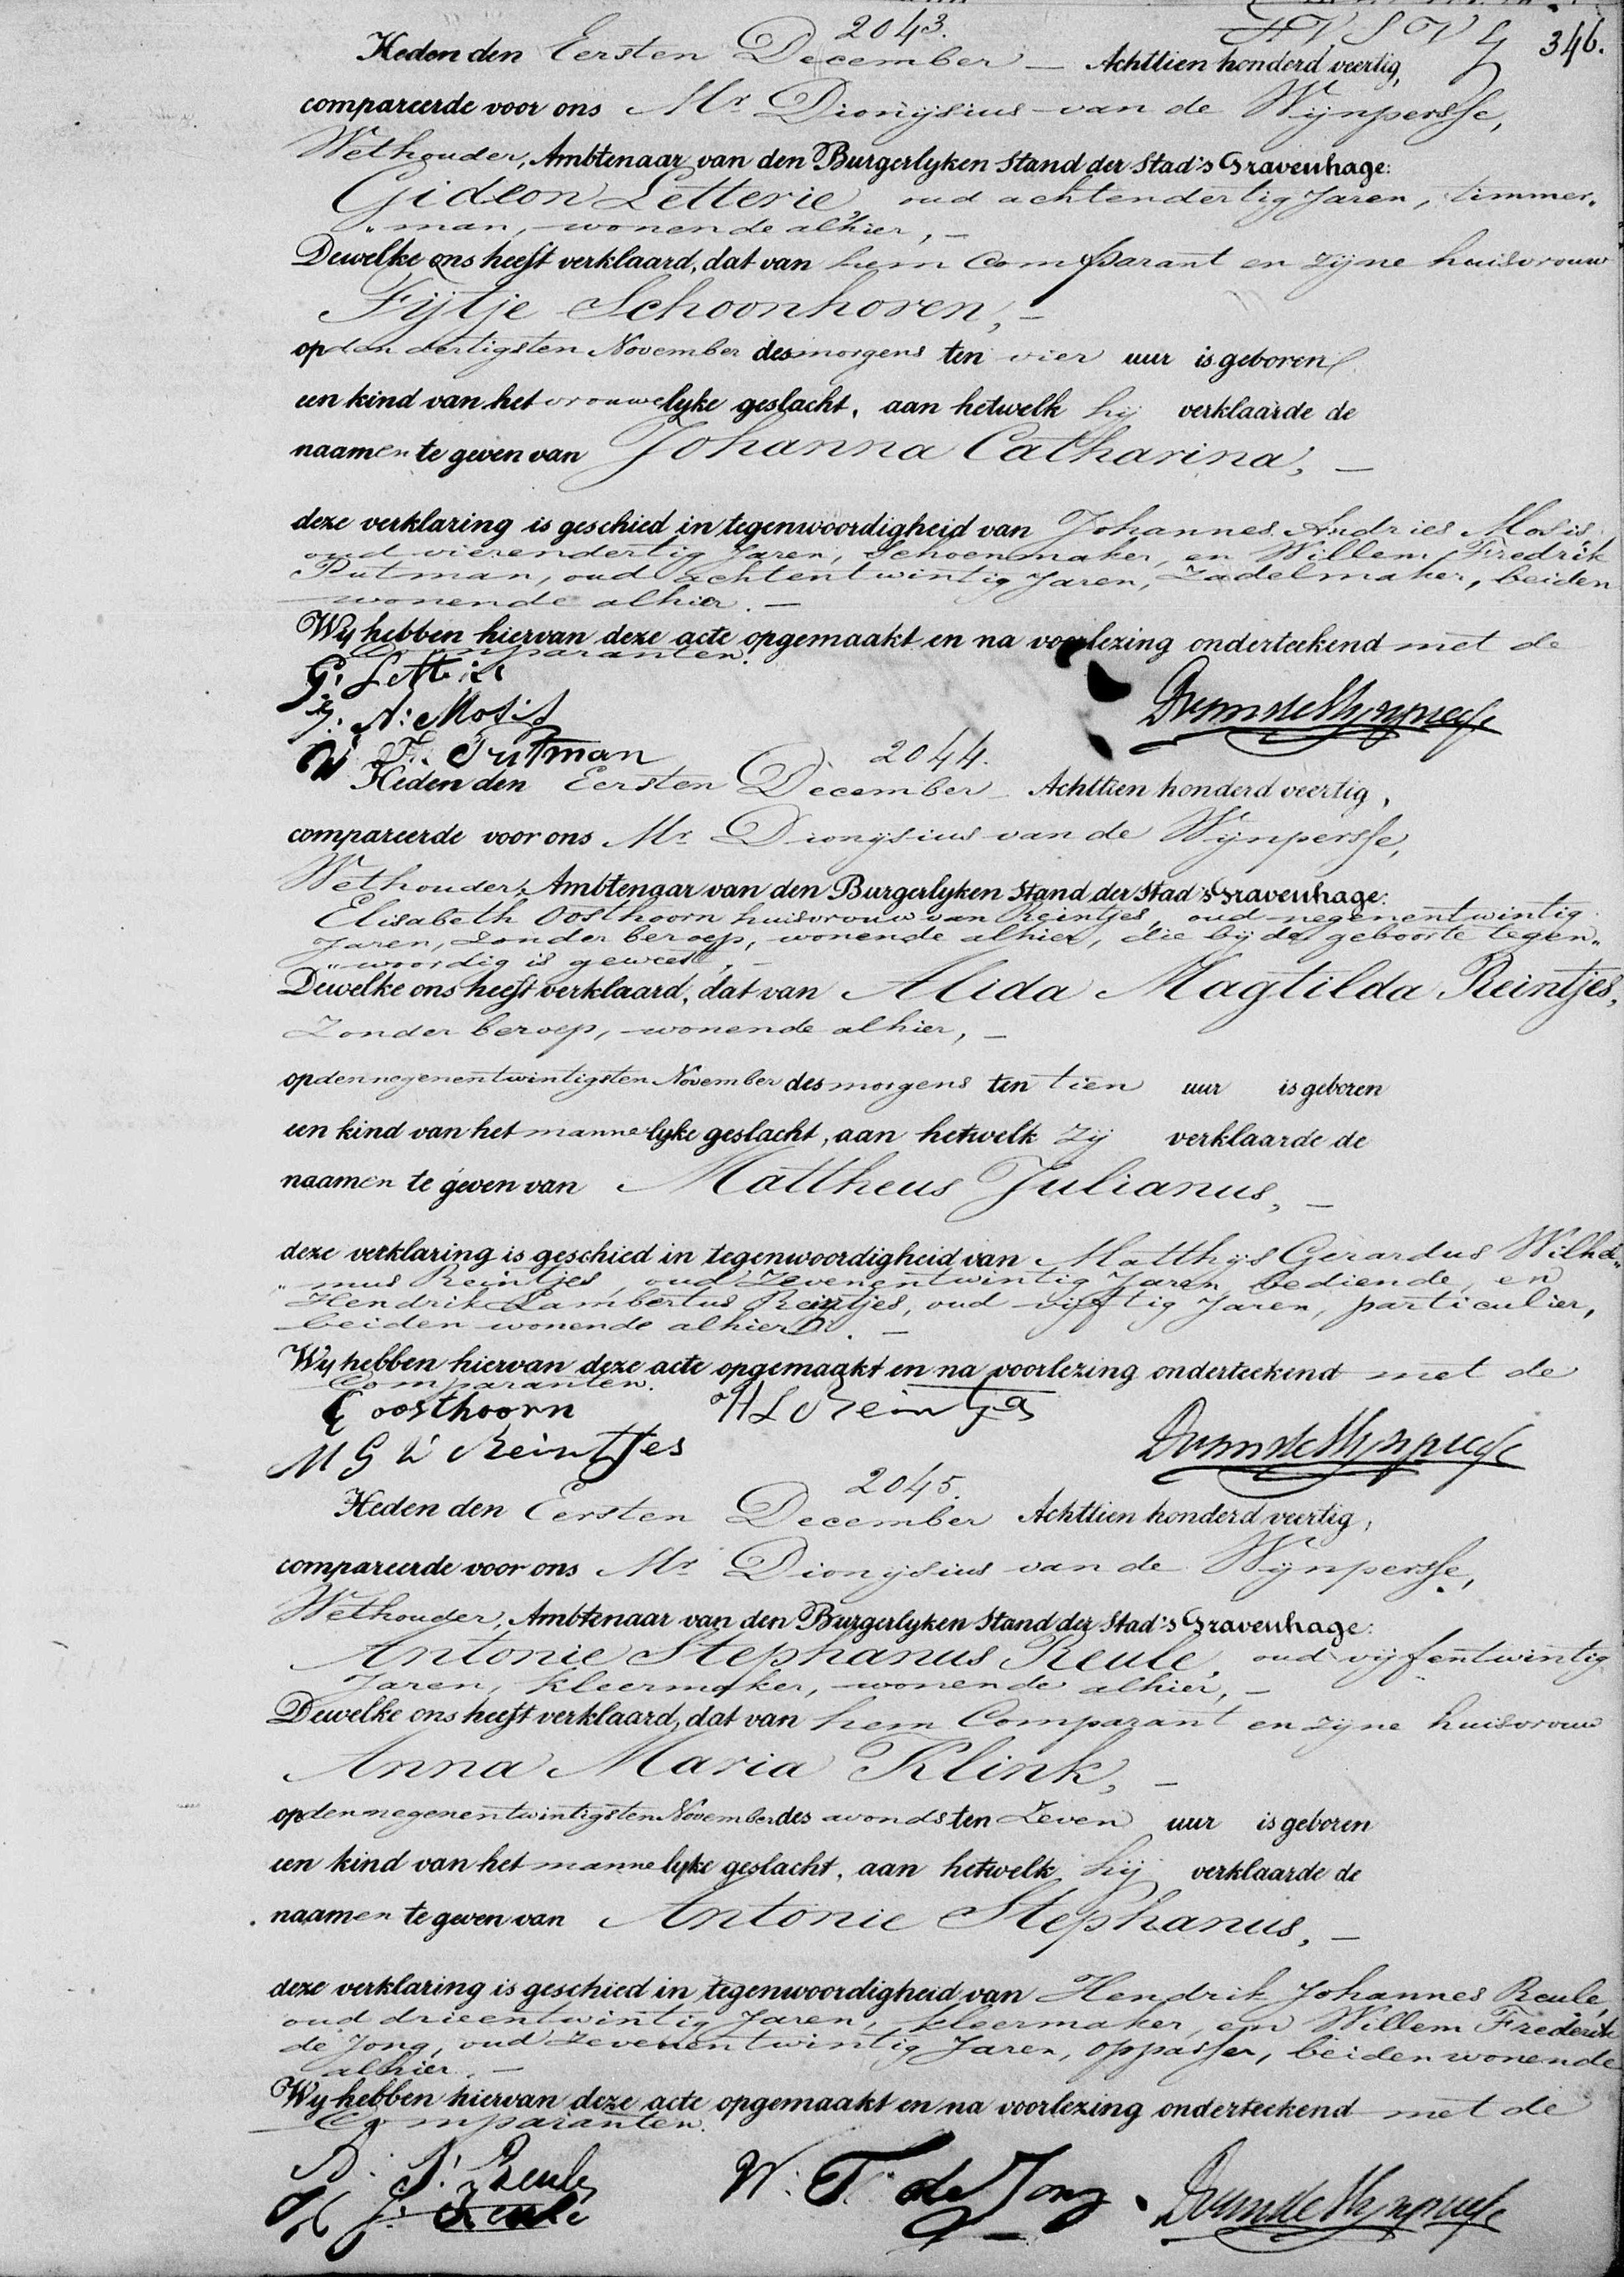 346.
2043.
Heden den Eersten December — Achttien honderd veertig,
compareerde voor ons Mr Dionijsius van de Wijnpersse,
Wethouder, Ambtenaar van den Burgerlyken Stand der Stad 's Gravenhage:
Gideon Letterie, oud achtendertig Jaren, timmer„
„man, wonende alhier, —
Dewelke ons heeft verklaard, dat van hem Comparant en zijne huisvrouw
Fijtje Schoonhoven, —
op den dertigsten November des morgens ten vier uur is geboren
een kind van het vrouwelyke geslacht, aan hetwelk hij verklaarde de
naamen te geven van Johanna Catharina, —
deze verklaring is geschied in tegenwoordigheid van Johannes Andries Mosis,
oud vierendertig Jaren, Schoenmaker, en Willem Fredrik
Putman, oud achtentwintig Jaren, Zadelmaker, beiden
wonende alhier. —
Wy hebben hiervan deze acte opgemaakt en na voorlezing onderteekend met de
Comparanten.
G. Letterie
J. A. Mosis
W. F. Putman
2044.
Heden den Eersten December — Achttien honderd veertig,
compareerde voor ons Mr Dionijsius van de Wijnpersse,
Wethouder, Ambtenaar van den Burgerlyken Stand der Stad 's Gravenhage:
Elisabeth Oosthoorn huisvrouw van Reintjes, oud negenentwintig
Jaren, zonder beroep, wonende alhier, die bij de geboorte tegen„
„woordig is geweest, —
Dewelke ons heeft verklaard, dat van Alida Magtilda Reintjes,
Zonder beroep, wonende alhier, —
op den negenentwintigsten November des morgens ten tien uur is geboren
een kind van het mannelyke geslacht, aan hetwelk zij verklaarde de
naamen te geven van Mattheus Julianus, —
deze verklaring is geschied in tegenwoordigheid van Matthijs Gerardus Wilhel„
„mus Reintjes, oud Zevenentwintig Jaren, bediende, en
Hendrik Lambertus Reintjes, oud vijftig Jaren, particulier,
beiden wonende alhier. —
Wy hebben hiervan deze acte opgemaakt en na voorlezing onderteekend met de
Comparanten.
E oosthoorn H L Reintjes
M G W Reintjes
2045.
Heden den Eersten December Achttien honderd veertig,
compareerde voor ons Mr Dionijsius van de Wijnpersse,
Wethouder, Ambtenaar van den Burgerlyken Stand der Stad 's Gravenhage:
Antonie Stephanus Reule, oud vijfentwintig
Jaren, kleermaker, wonende alhier, —
Dewelke ons heeft verklaard, dat van hem Comparant en zijne huisvrouw
Anna Maria Klink, —
op den negenentwintigsten November des avonds ten Zeven uur is geboren
een kind van het mannelyke geslacht, aan hetwelk hij verklaarde de
naamen te geven van Antonie Stephanus, —
deze verklaring is geschied in tegenwoordigheid van Hendrik Johannes Reule,
oud drieentwintig Jaren, kleermaker, en Willem Frederik
de Jong, oud zevenentwintig Jaren, oppasser, beiden wonende
alhier. —
Wy hebben hiervan deze acte opgemaakt en na voorlezing onderteekend met de
Comparanten.
A. S. Reule W. F. de Jong
H J. Reule